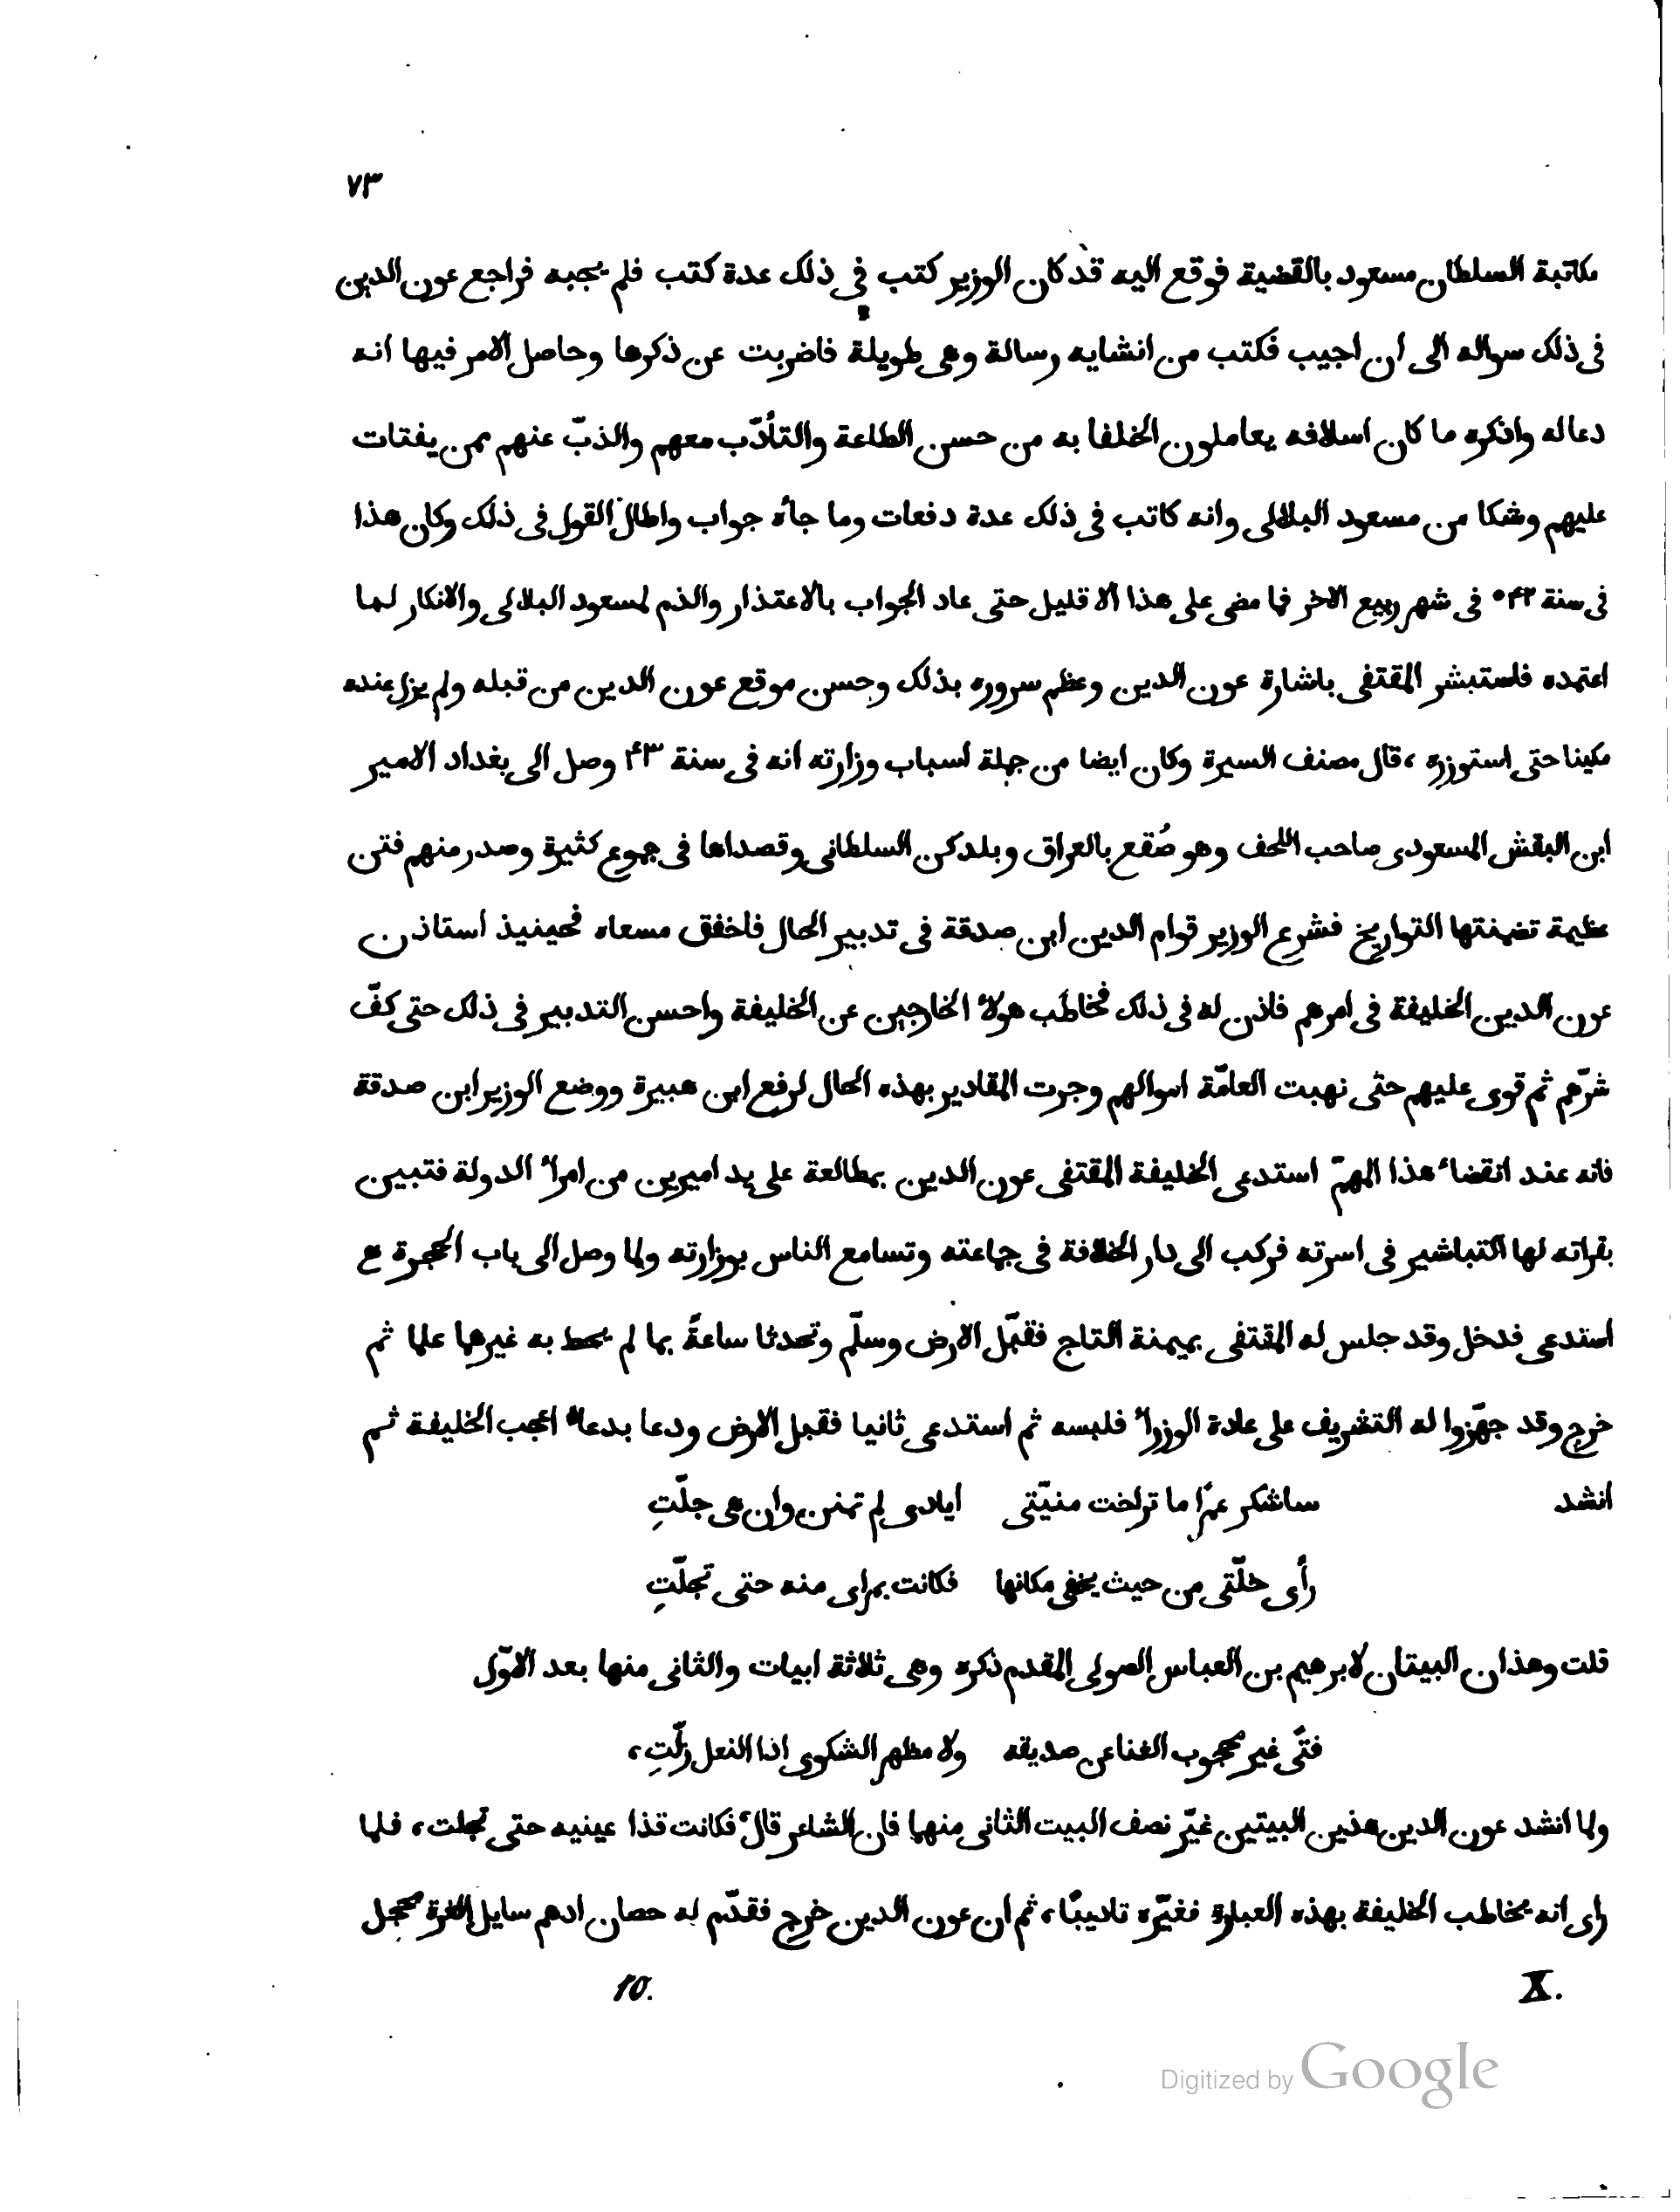 ٧٣
مكاتبة السلطان مسعود بالقضية فوقع اليه قد كان الوزير كتب في ذلك عدة كتب فلم يجبه فراجع عون الدين
فى ذلك سواله الى ان اجيب فكتب من انشايه رسالة وهى طويلة فاضربت عن ذكرها وحاصل الامر فيها انه
دعا له واذكره ما كان اسلافه يعاملون الخلفا به من حسن الطاعة والتأدّب معهم والذبّ عنهم ممن يفتات
عليهم وشكا من مسعود البلالى وانه كاتب فى ذلك عدة دفعات وما جأه جواب واطال القول فى ذلك وكان هذا
فى سنة ٥٤٢ فى شهر ربيع الاخر فما مضى على هذا الا قليل حتى عاد الجواب بالاعتذار والذم لمسعود البلالى والانكار لما
اعتمده فاستبشر المقتفى باشارة عون الدين وعظم سروره بذلك وحسن موقع عون الدين من قبله ولم يزل عنده
مكينا حتى استوزره، قال مصنف السيرة وكان ايضا من جملة اسباب وزارته انه فى سنة ٤٣ وصل الى بغداد الامير
ابن البقش المسعودى صاحب اللحف وهو صُقع بالعراق وبلدكن السلطانى وقصداها فى جموع كثيرة وصدر منهم فتن
عظيمة تضمنتها التواريخ فشرع الوزير قوام الدين ابن صدقة فى تدبير الحال فاخفق مسعاه فحينيذ استاذن
عون الدين الخليفة فى امرهم فاذن له فى ذلك فخاطَب هولأ الخارجين عن الخليفة واحسن التدبير فى ذلك حتى كفّ
شرّهم ثم قوى عليهم حتى نهبت العامّة اموالهم وجرت المقادير بهذه الحال لرفع ابن هبيرة ووضع الوزير ابن صدقة
فانه عند انقضاء هذا المهمّ استدعى الخليفة المقتفى عون الدين بمطالعة على يد اميرين من امرأ الدولة فتبين
بقراته لها التباشير فى اسرته فركب الى دار الخلافة فى جماعته وتسامع الناس بوزارته ولما وصل الى باب الحجرة ع
استدعى فدخل وقد جلس له المقتفى بميمنة التاج فقبّل الارض وسلّم وتحدثا ساعةً بما لم يحط به غيرهما علما ثم
خرج وقد جهّزوا له التشريف على عادة الوزرأ فلبسه ثم استدعى ثانيا فقبل الارض ودعا بدعأ اعجب الخليفة ثم
انشد ساشكر عمرًا ما تراخت منيّتى ايادى لم تمنن وان هى جلّتِ
رأى خلّتى من حيث يخفى مكانها فكانت بمراى منه حتى تجلّتِ
قلت وهذان البيتان لابرهيم بن العباس الصولى المقدم ذكره وهى ثلاثة ابيات والثانى منها بعد الاوّل
فتًى غير محجوب الغنا عن صديقه ولا مظهر الشكوى اذا النعل زلّتِ،
ولما انشد عون الدين هذين البيتين غيّر نصف البيت الثانى منهما فان الشاعر قال فكانت قذا عينيه حتى تجلت، فلما
راى انه يخاطب الخليفة بهذه العبارة فغيّره تاديبًا، ثم ان عون الدين خرج فقدّم له حصان ادهم سايل الغرة محجل
X. 10.
Digitized by Google